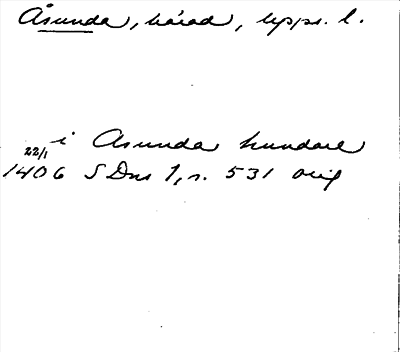 Åsunda, härad, Upps. l.
i Asunda hundare
22/1
1406 SDns 1, s. 531 orig